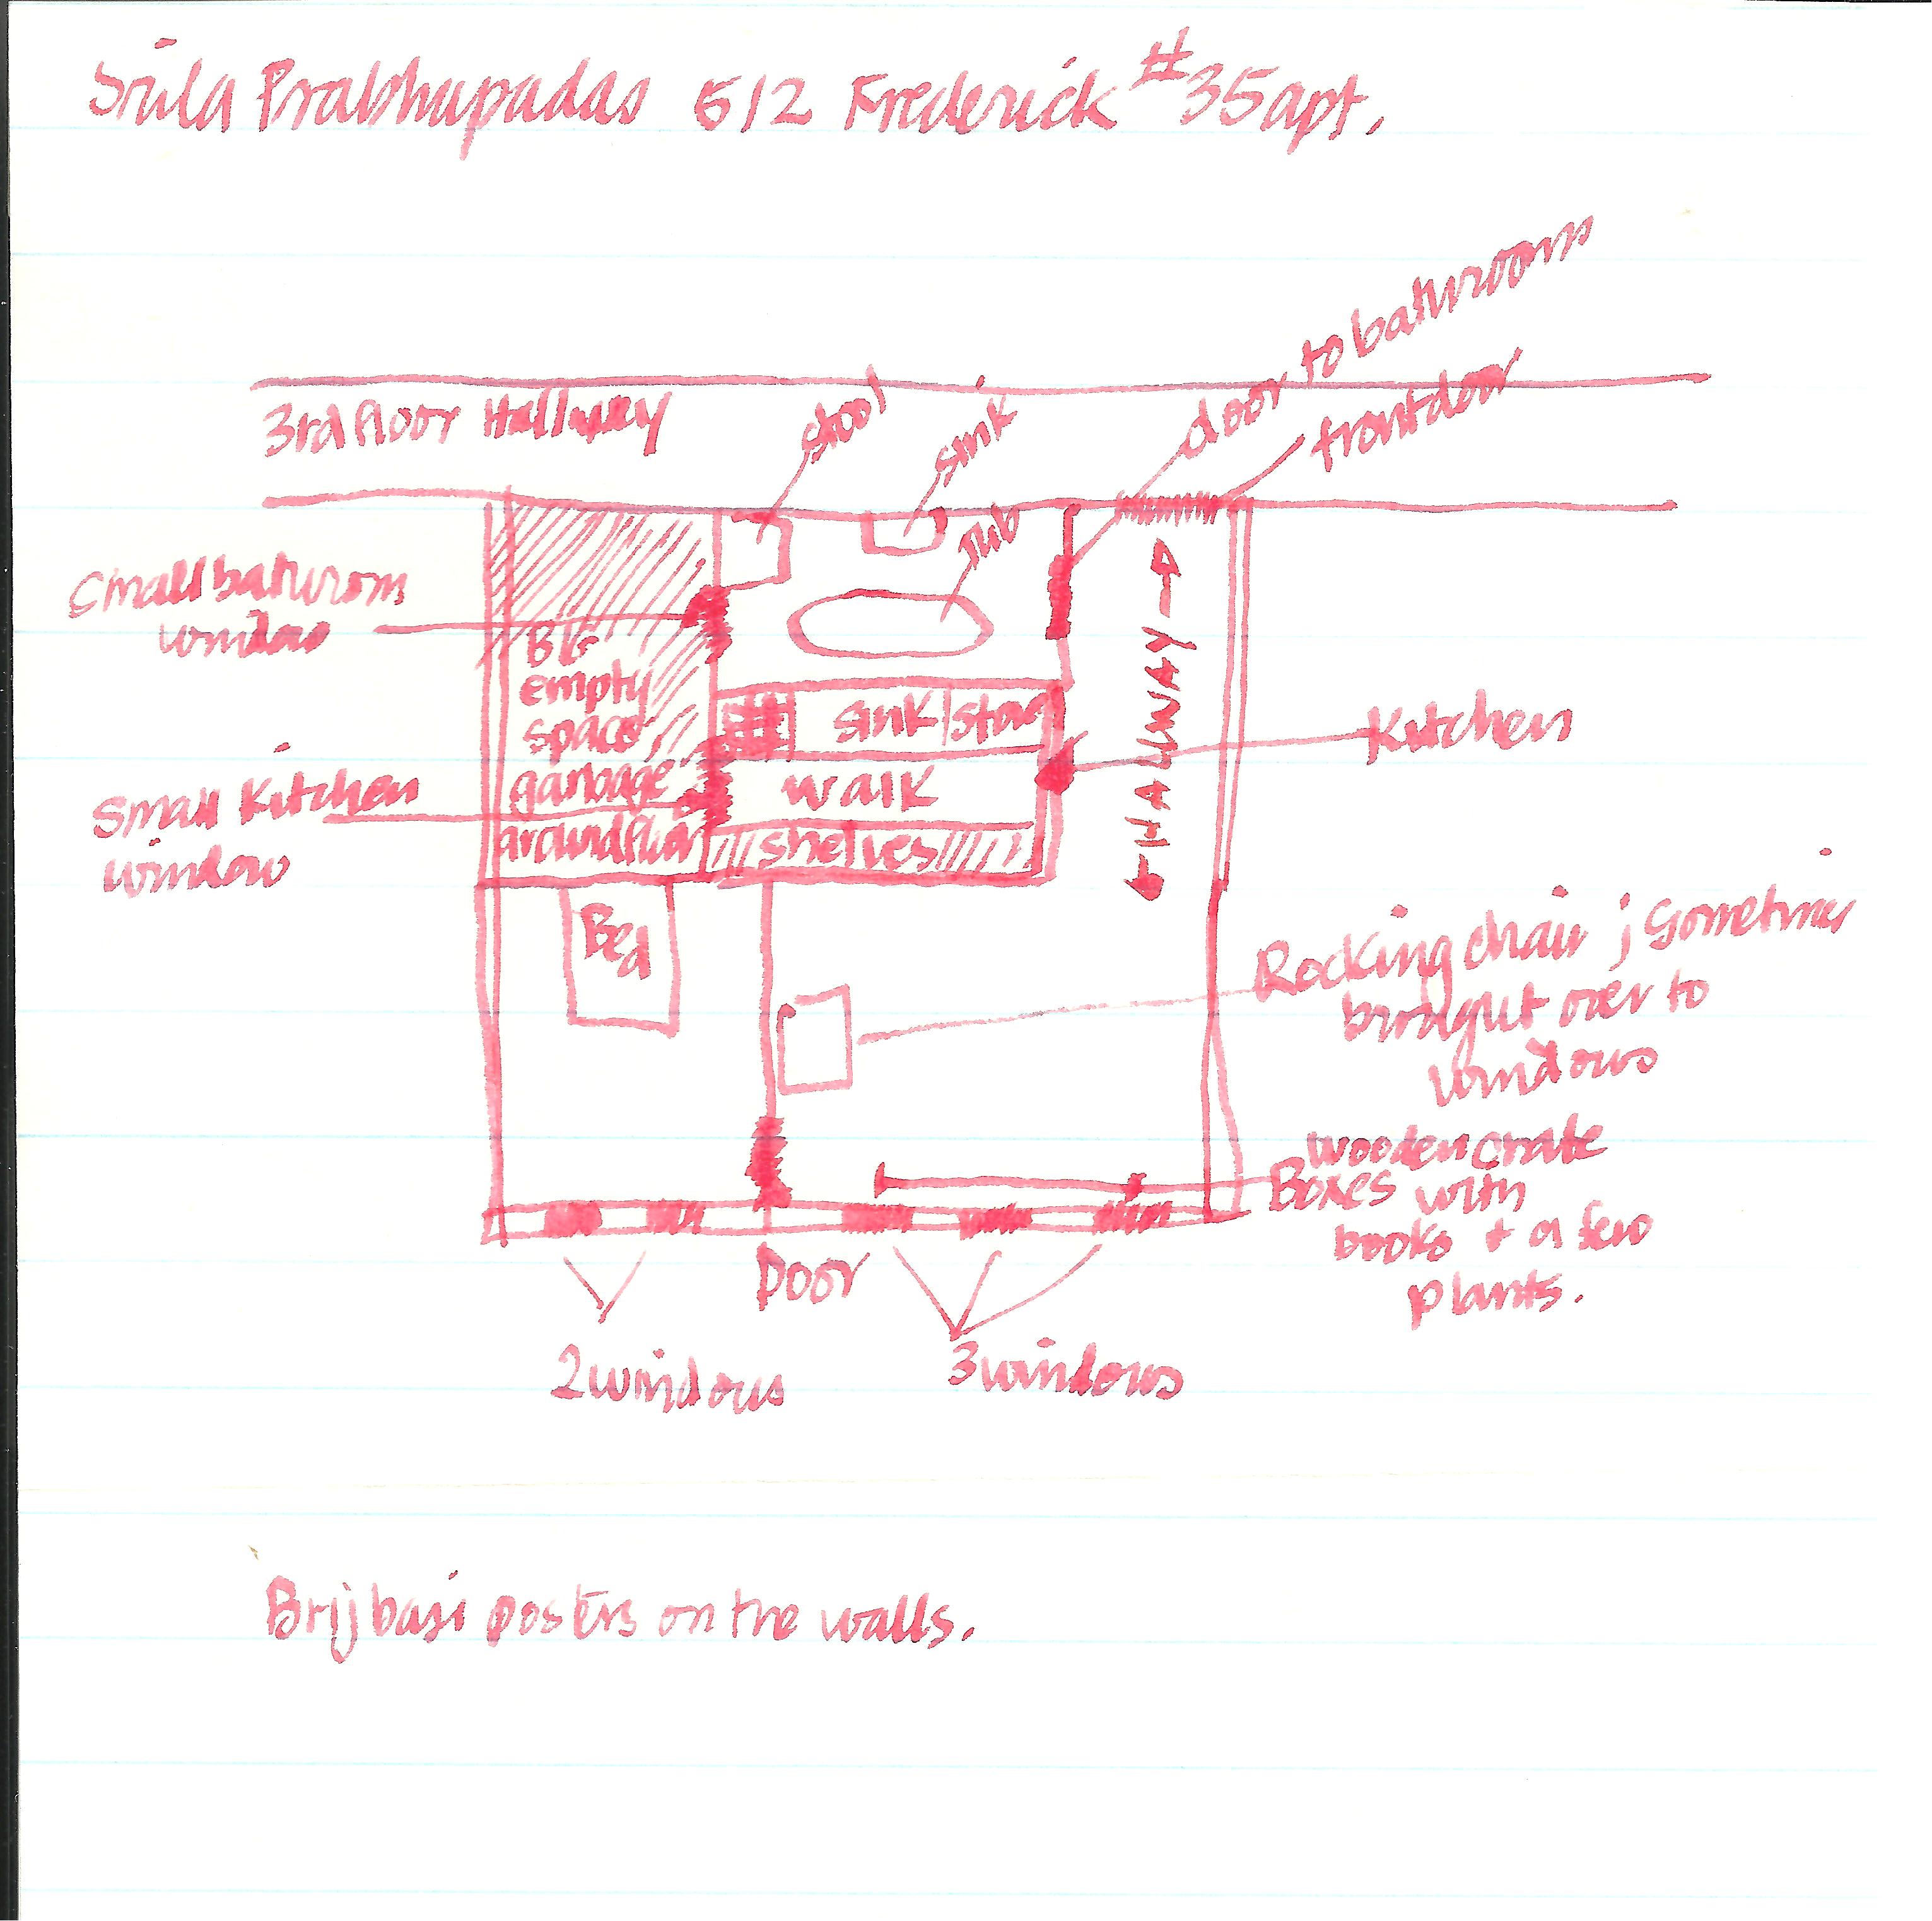 Srila Prabhupadas 512 Frederick #35 apt.
door to bathroom
front door
3rd floor Hallway
stool
sink
Tub
Small bathroom
window
BIG
empty
space
garbage
ground floor
sink
stove
walk
shelves
HALLWAY
Kitchen
Small Kitchen
window
Bed
Rocking chair; Sometimes
brought over to
windows
wooden crate
Boxes with
books + a few
plants.
Door
2 windows
3 windows
Brijbasi posters on the walls.